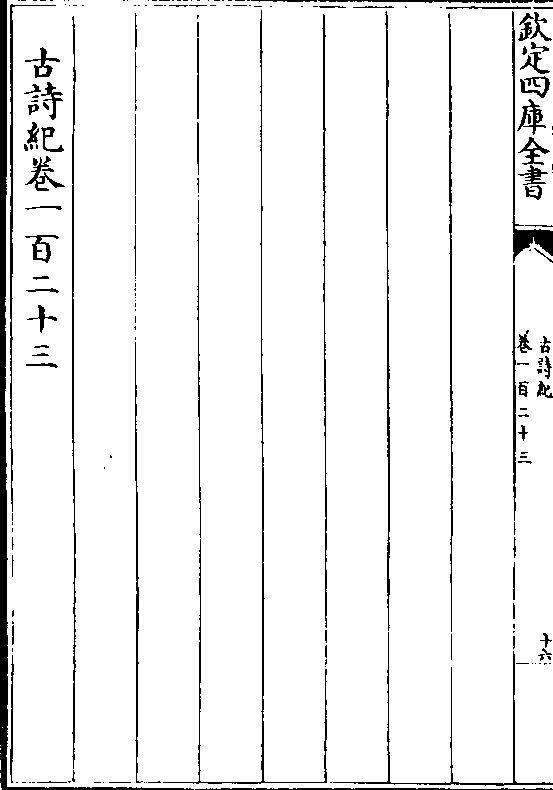 欽定四庫全書
古詩紀
卷一百二十三
十六
古詩紀卷一百二十三